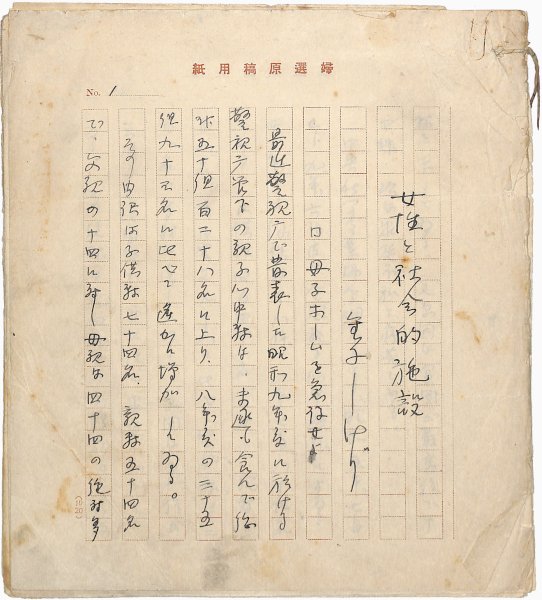 婦選原稿用紙
No. 1
女性と社会的施設
金子しげり
口 母子ホームを急設せよ
最近警視庁で発表した昭和九年度に於ける
警視庁管下の親子心中数は、未遂も含んで総
計五十組百二十八名に上り、八年度の三十五
組九十三名に比べて遙かに増加してゐる。
その内訳は子供数七十四名、親数五十四名
で、父親の十四に対し母親は四十四の絶対多
(10・20)